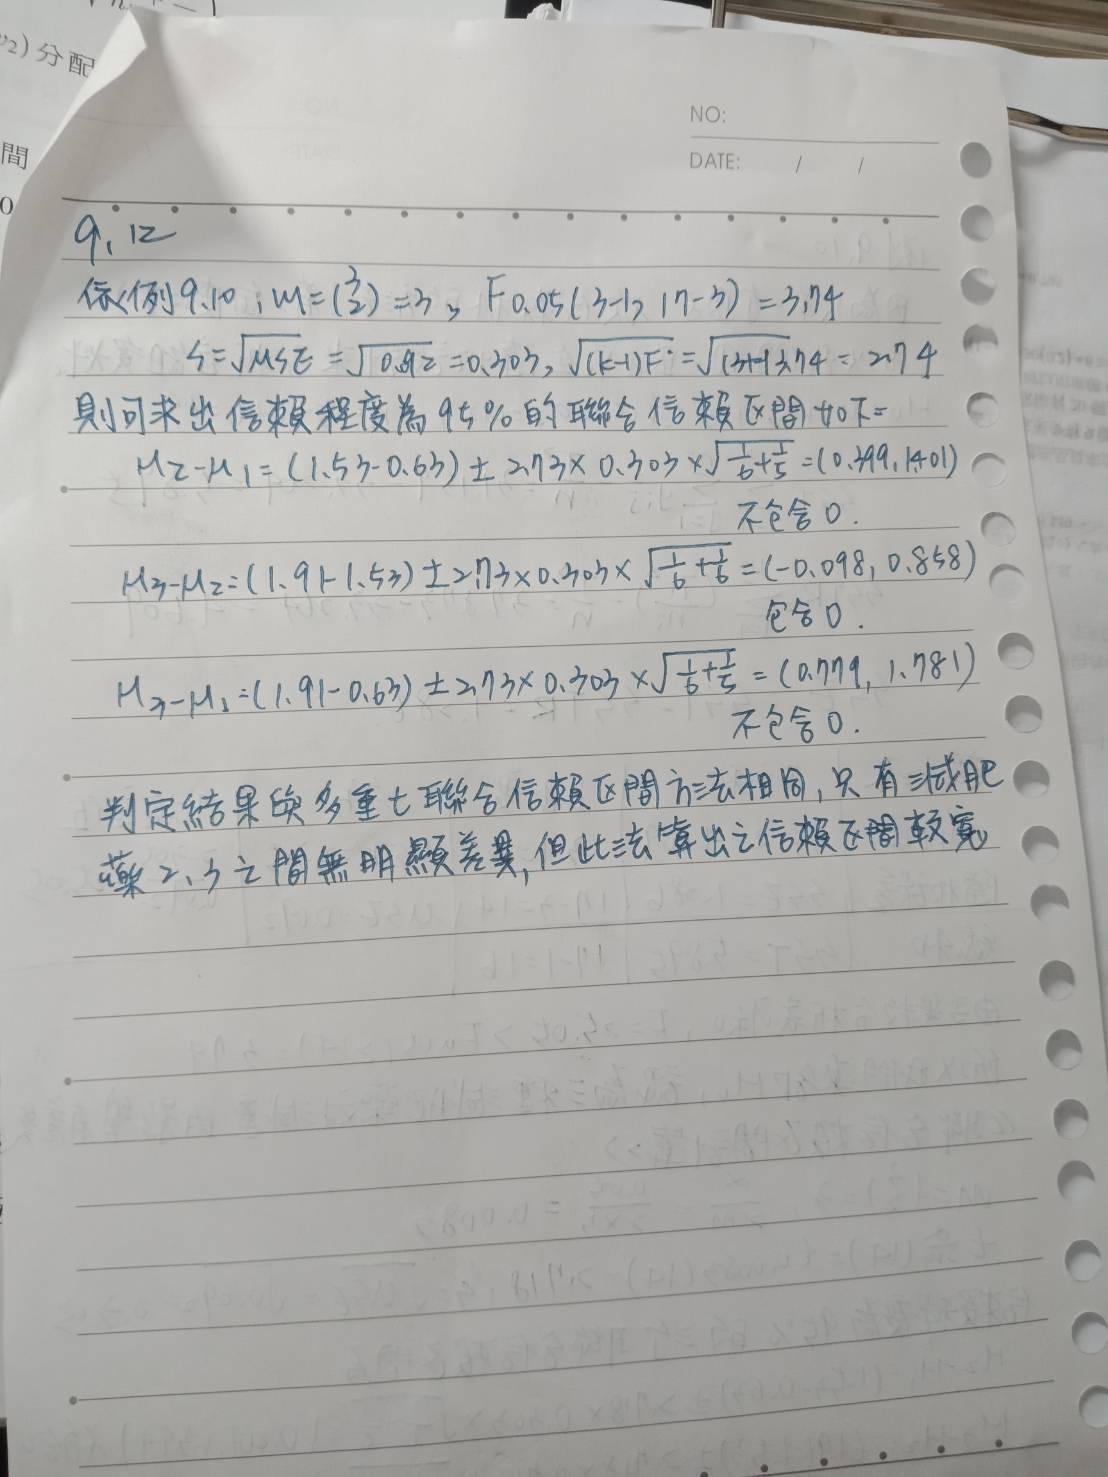 分配
間
0
NO:
DATE: / /
9.12
依例9.10,m=(3 2)=3, F0.05(3-1, 17-3)=3.74
S=√MSE=√0.092=0.303, √(k-1)F=√(3-1)3.74=2.74
則可求出信賴程度為95%的聯合信賴區間如下=
μ2-μ1=(1.53-0.63)±2.73×0.303×√1/6+1/5=(0.399,1.401)
不包含0.
μ3-μ2=(1.91-1.53)±2.73×0.303×√1/6+1/6=(-0.098,0.858)
包含0.
μ3-μ1=(1.91-0.63)±2.73×0.303×√1/6+1/5=(0.779,1.781)
不包含0.
判定結果與多重t聯合信賴區間方法相同,只有減肥
藥2、3之間無明顯差異,但此法算出之信賴區間較寬